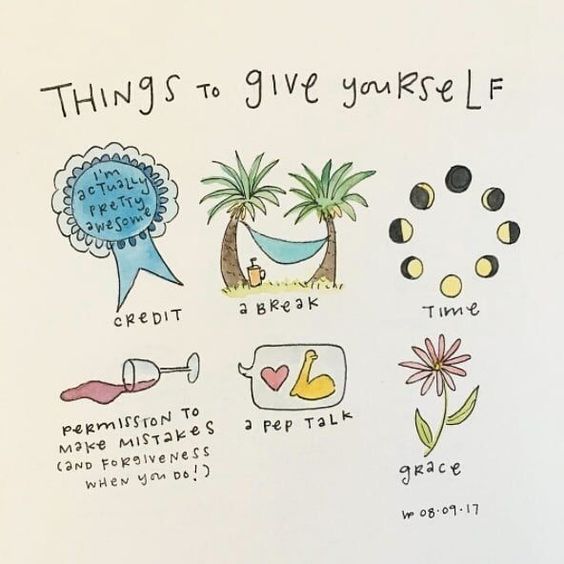 THINGS TO gIVe youRSeLF
I'm
acTuaLLy
PReTTy
awesome
CReDIT
a BReaK
TIme
PeRmISSION TO
Make MISTakeS
(aND FoRgIveNeSS
wHeN you Do!)
a PeP TaLK
gRace
08.09.17